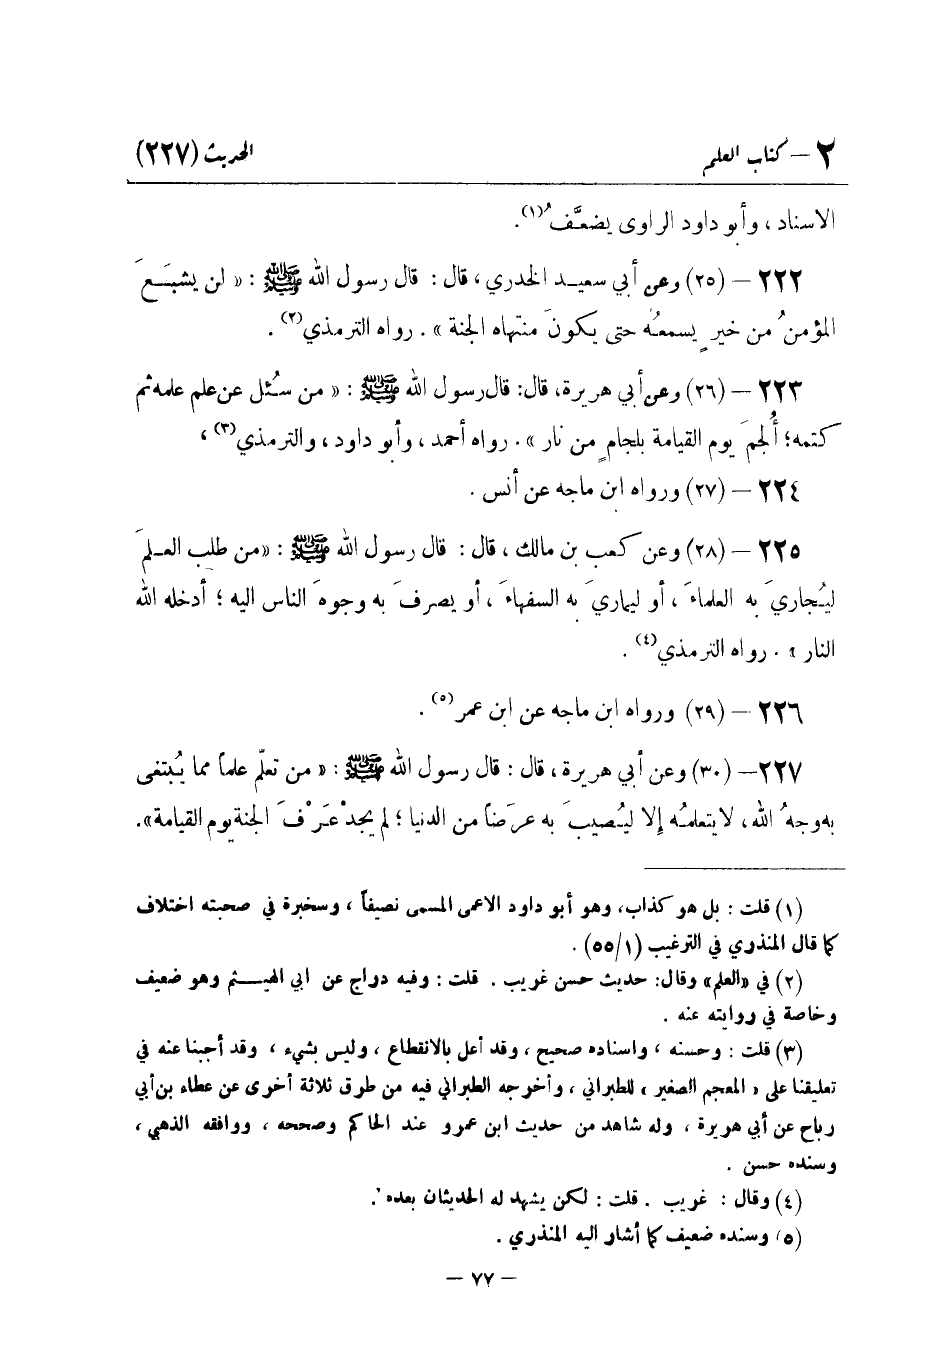 ٢ – كتاب العلم الحديث (٢٢٧)
الاسناد ، وأبو داود الراوي يضعَّفُ(١).
٢٢٢ – (٢٥) وعن أبي سعيد الخدري ، قال : قال رسول الله ﷺ : « لن يشبَعَ
المؤمنُ من خيرٍ يسمعُه حتى يكونَ منتهاه الجنة » . رواه الترمذي(٢) .
٢٢٣ – (٢٦) وعن أبي هريرة، قال: قال رسول الله ﷺ : « من سُئل عن علم علمه ثم
كتمه؛ أُلجمَ يوم القيامة بلجامٍ من نار » . رواه أحمد ، وأبو داود ، والترمذي(٣) ،
٢٢٤ – (٢٧) ورواه ابن ماجه عن أنس .
٢٢٥ – (٢٨) وعن كعب بن مالك ، قال : قال رسول الله ﷺ : «من طلب العلمَ
ليُجاريَ به العلماءَ ، أو ليماريَ به السفهاءَ ، أو يصرفَ به وجوهَ الناس اليه ؛ أدخله الله
النار » . رواه الترمذي(٤) .
٢٢٦ – (٢٩) ورواه ابن ماجه عن ابن عمر(٥) .
٢٢٧– (٣٠) وعن أبي هريرة ، قال : قال رسول الله ﷺ : « من تعلّم علماً مما يُبتغى
به وجهُ الله، لا يتعلمُه إلا ليُصيبَ به عرَضاً من الدنيا ؛ لم يجدْ عَرْفَ الجنة يوم القيامة».
(١) قلت : بل هو كذاب، وهو أبو داود الاعمى المسمى نصيفاً ، وسخبرة في صحبته اختلاف
كما قال المنذري في الترغيب (٥٥/١) .
(٢) في «العلم» وقال: حديث حسن غريب . قلت : وفيه دراج عن ابي الهيثم وهو ضعيف
وخاصة في روايته عنه .
(٣) قلت : وحسنه ، واسناده صحيح ، وقد أعل بالانقطاع ، وليس بشيء ، وقد أجبنا عنه في
تعليقنا على « المعجم الصغير » للطبراني ، وأخرجه الطبراني فيه من طرق ثلاثة أخرى عن عطاء بن أبي
رباح عن أبي هريرة ، وله شاهد من حديث ابن عمرو عند الحاكم وصححه ، ووافقه الذهبي ،
وسنده حسن .
(٤) وقال : غريب . قلت : لكن يشهد له الحديثان بعده .
(٥) وسنده ضعيف كما أشار اليه المنذري .
– ٧٧ –